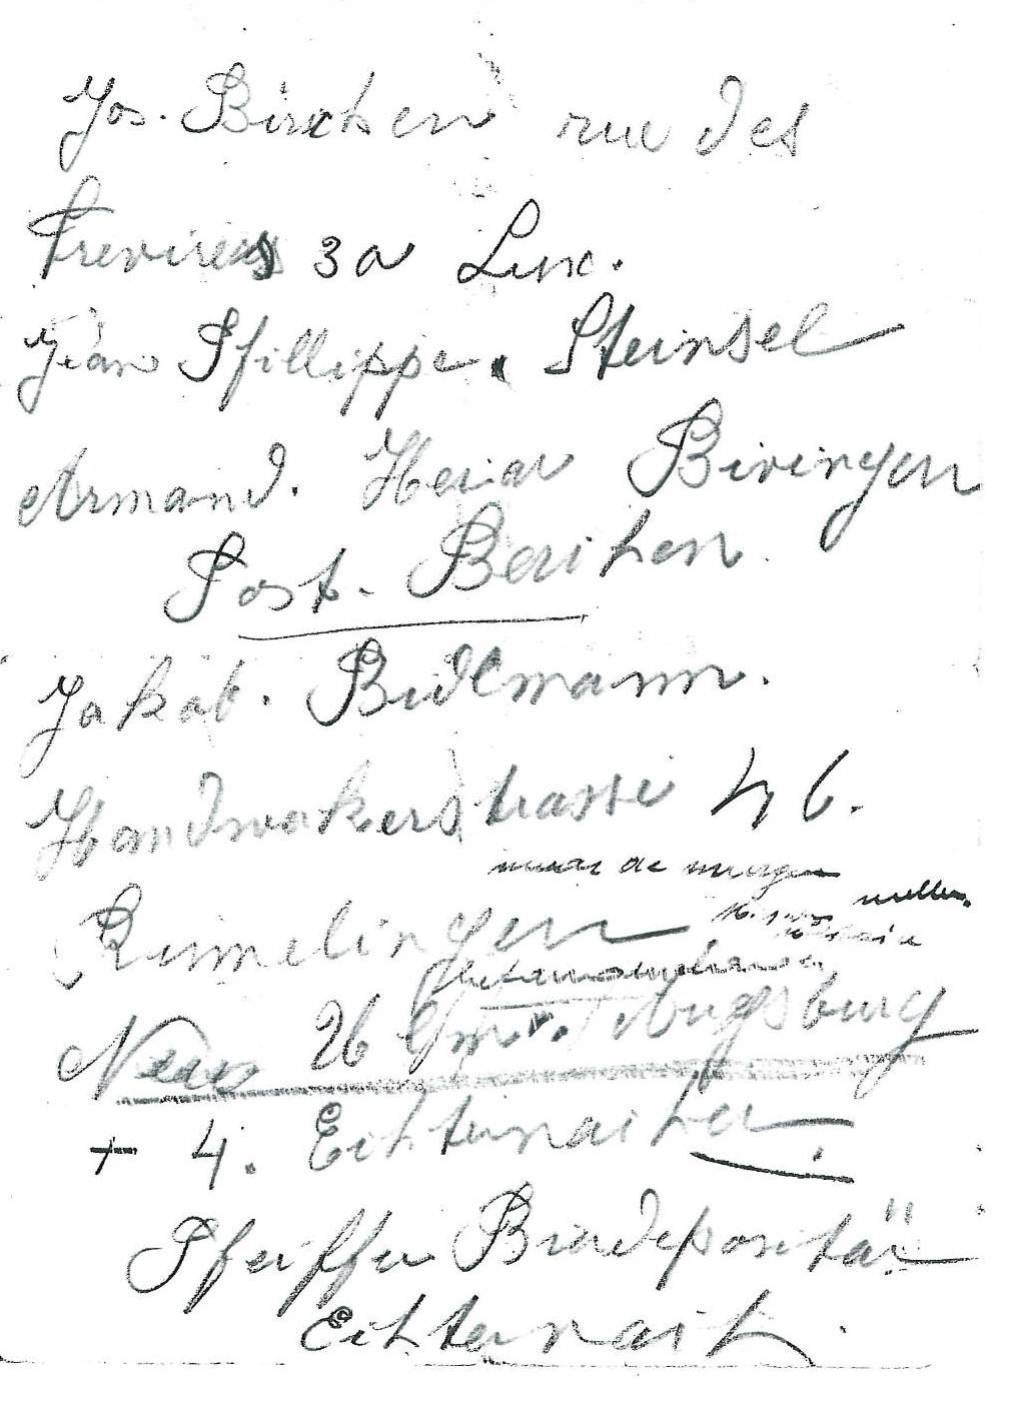 Jos. Birchen rue des
Trevirers 30 Lux.
Jean Pfillippe. Steinsel
Armand. Hein Biringen
Post. Berchen.
Jakob. Budlmann.
Handwerkerstrasse 46.
Rümelingen
Neu 26 Augsburg
+ 4. Echternacher
Pfeiffer Bierdepositär
Echternach.